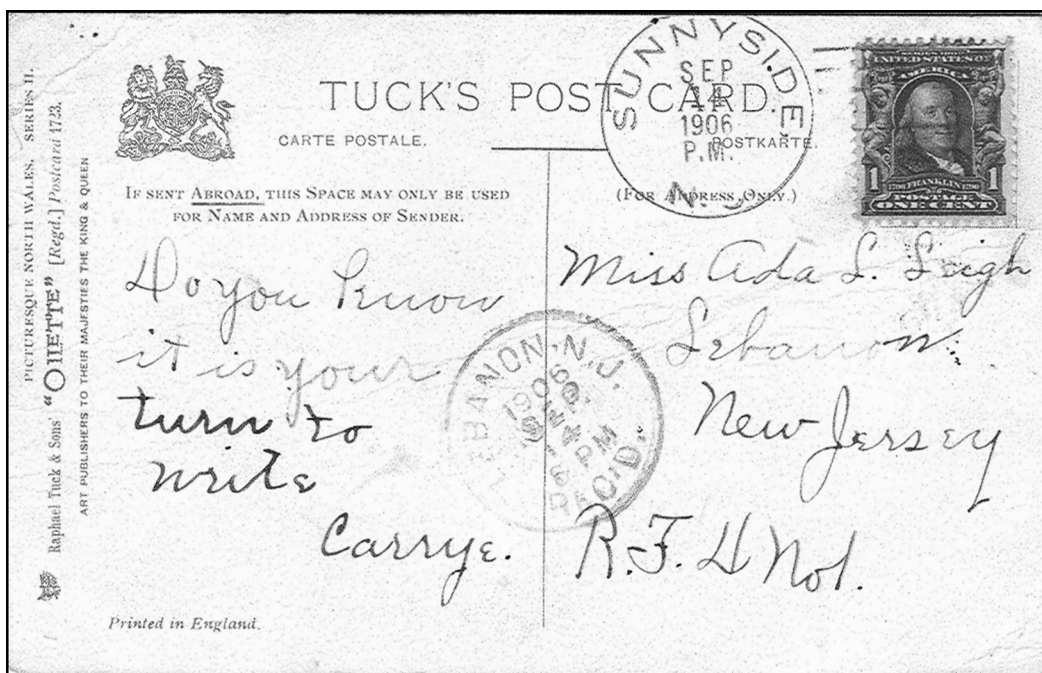 PICTURESQUE NORTH WALES. SERIES II.
Raphael Tuck & Sons' "OILETTE" [Regd.] Postcard 1723.
ART PUBLISHERS TO THEIR MAJESTIES THE KING & QUEEN
TUCK'S POST CARD.
CARTE POSTALE.
POSTKARTE.
IF SENT ABROAD, THIS SPACE MAY ONLY BE USED
FOR NAME AND ADDRESS OF SENDER.
(FOR ADDRESS ONLY.)
SUNNYSIDE,
SEP
14
1906
P.M.
N.J.
UNITED STATES OF
AMERICA
1 1706 FRANKLIN 1790 1
POSTAGE
ONE CENT
Do you know
it is your
turn to
write
Carrye.
Miss Ada L. Leigh
Lebanon
New Jersey
R.F.D No1.
LEBANON, N.J.
1906
REC'D.
Printed in England.